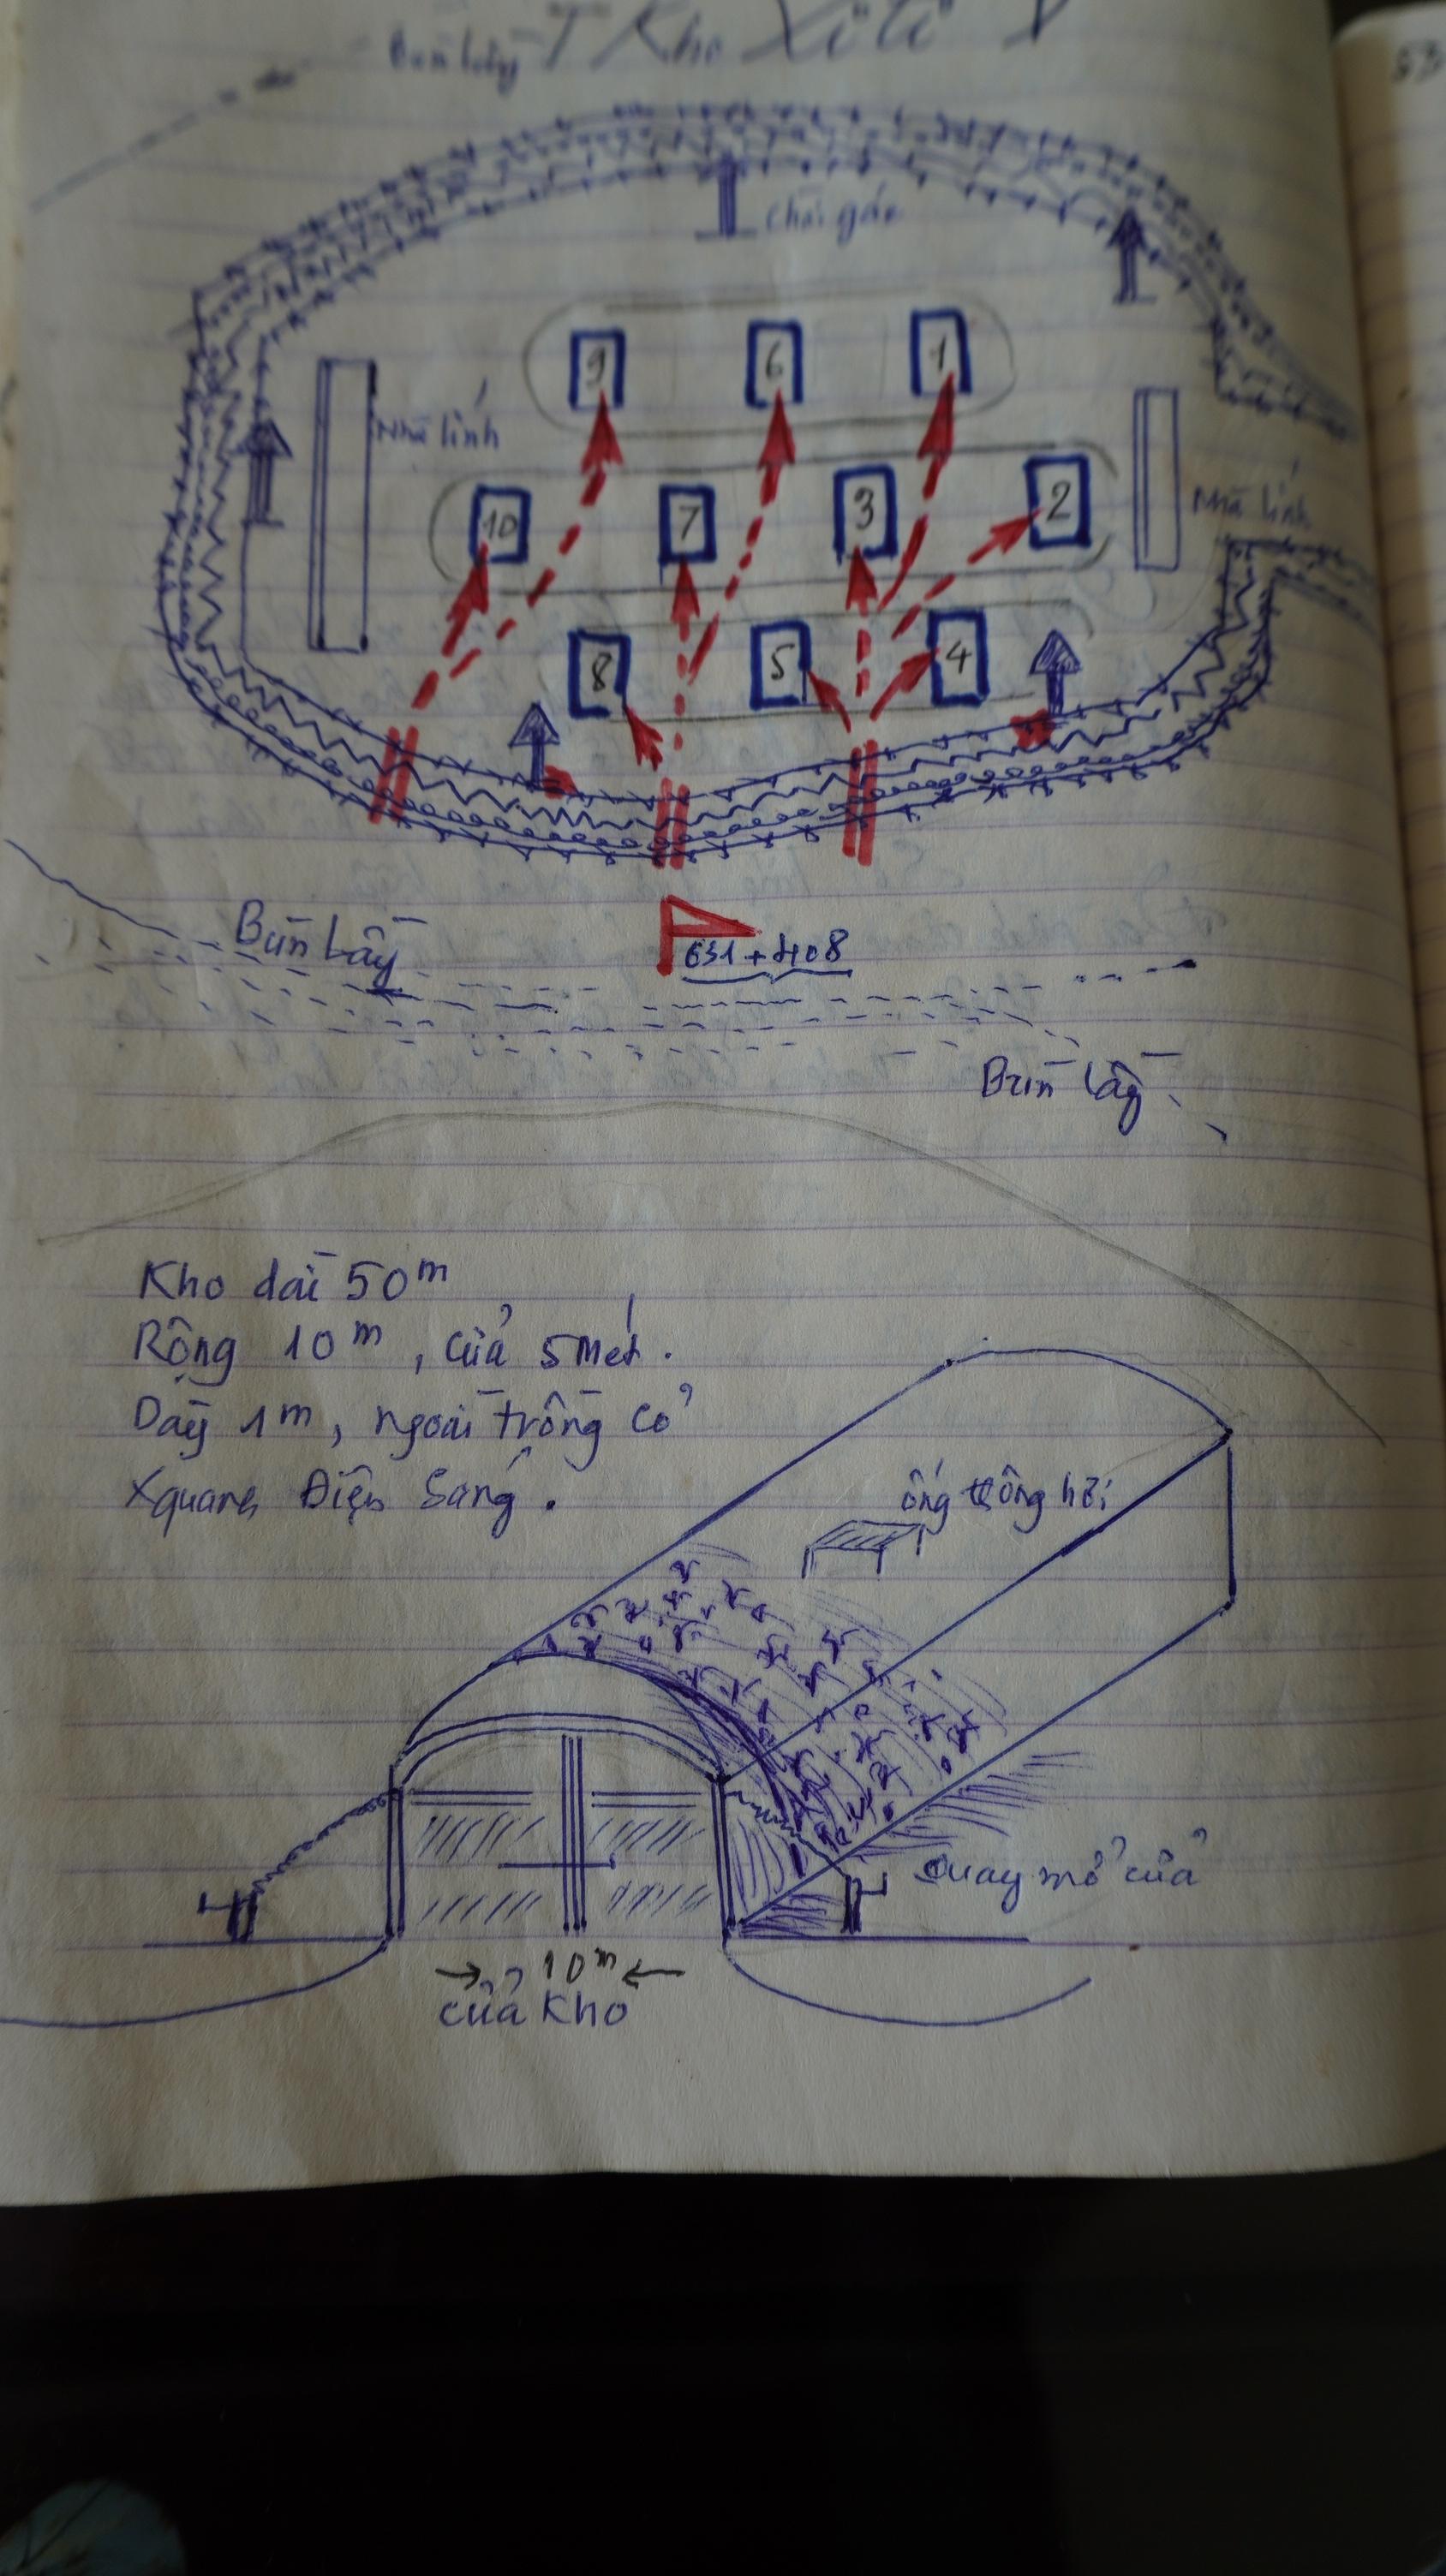 Bùn lầy
Kho Xi Ti
Chòi gác
9
6
1
Nhà lính
10
7
3
2
Nhà lính
8
5
4
Bùn Lầy
631 + 408
Bùn lầy
Kho dài 50m
Rộng 10m, cửa 5 mét.
Dày 1m, ngoài trồng cỏ
Xquanh Điện Sáng.
ống thông hơi
Quay mở cửa
10m
cửa Kho